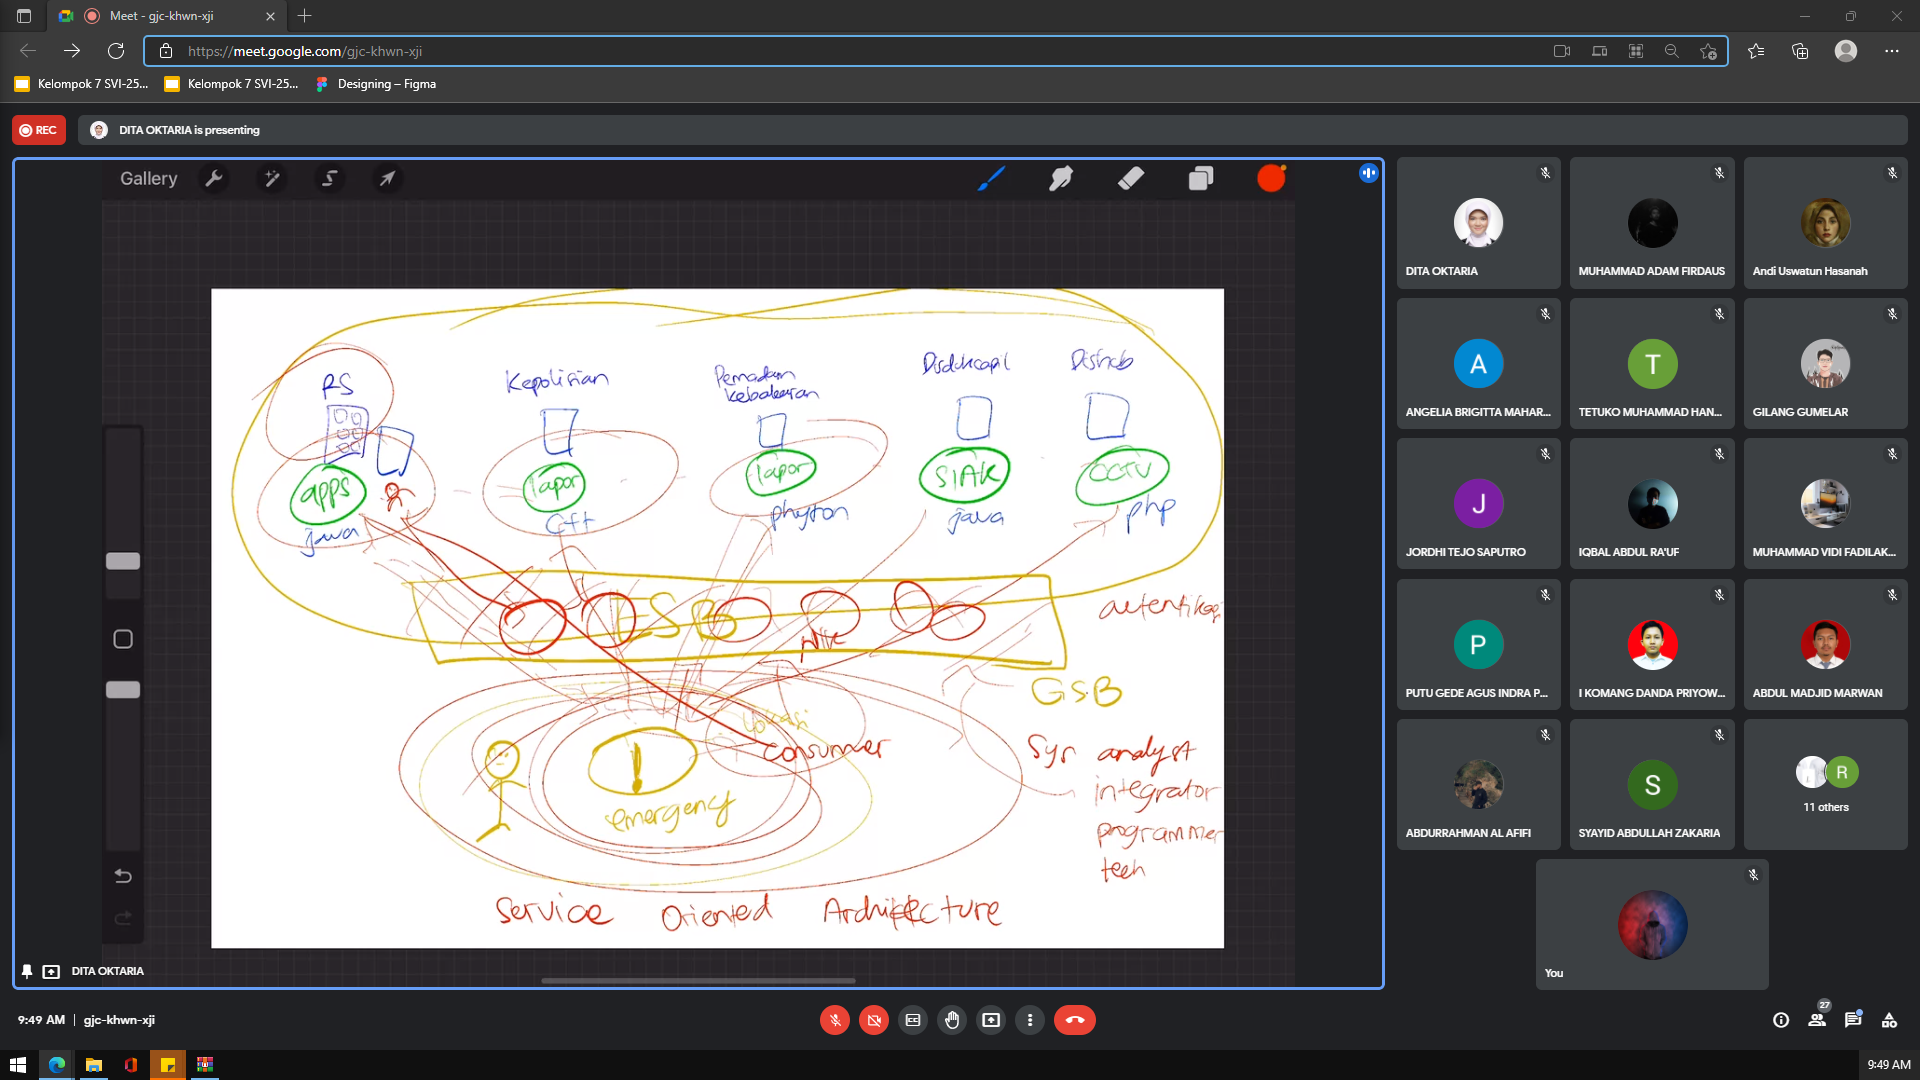 Meet - gjc-khwn-xji
https://meet.google.com/gjc-khwn-xji
Kelompok 7 SVI-25...
Kelompok 7 SVI-25...
Designing – Figma
REC
DITA OKTARIA is presenting
Gallery
RS
Kepolisian
Pemadam
kebakaran
Disdukcapil
Dishub
apps
lapor
lapor
SIAK
CCTV
java
C++
phyton
java
php
ESB
NIK
autentikasi
GSB
lokasi
consumer
emergency
Sys analyst
integrator
programmer
tech
Service Oriented Architecture
DITA OKTARIA
DITA OKTARIA
MUHAMMAD ADAM FIRDAUS
Andi Uswatun Hasanah
A
ANGELIA BRIGITTA MAHAR...
T
TETUKO MUHAMMAD HAN...
GILANG GUMELAR
J
JORDHI TEJO SAPUTRO
IQBAL ABDUL RA'UF
MUHAMMAD VIDI FADILAK...
P
PUTU GEDE AGUS INDRA P...
I KOMANG DANDA PRIYOW...
ABDUL MADJID MARWAN
ABDURRAHMAN AL AFIFI
S
SYAYID ABDULLAH ZAKARIA
R
11 others
You
9:49 AM | gjc-khwn-xji
27
9:49 AM